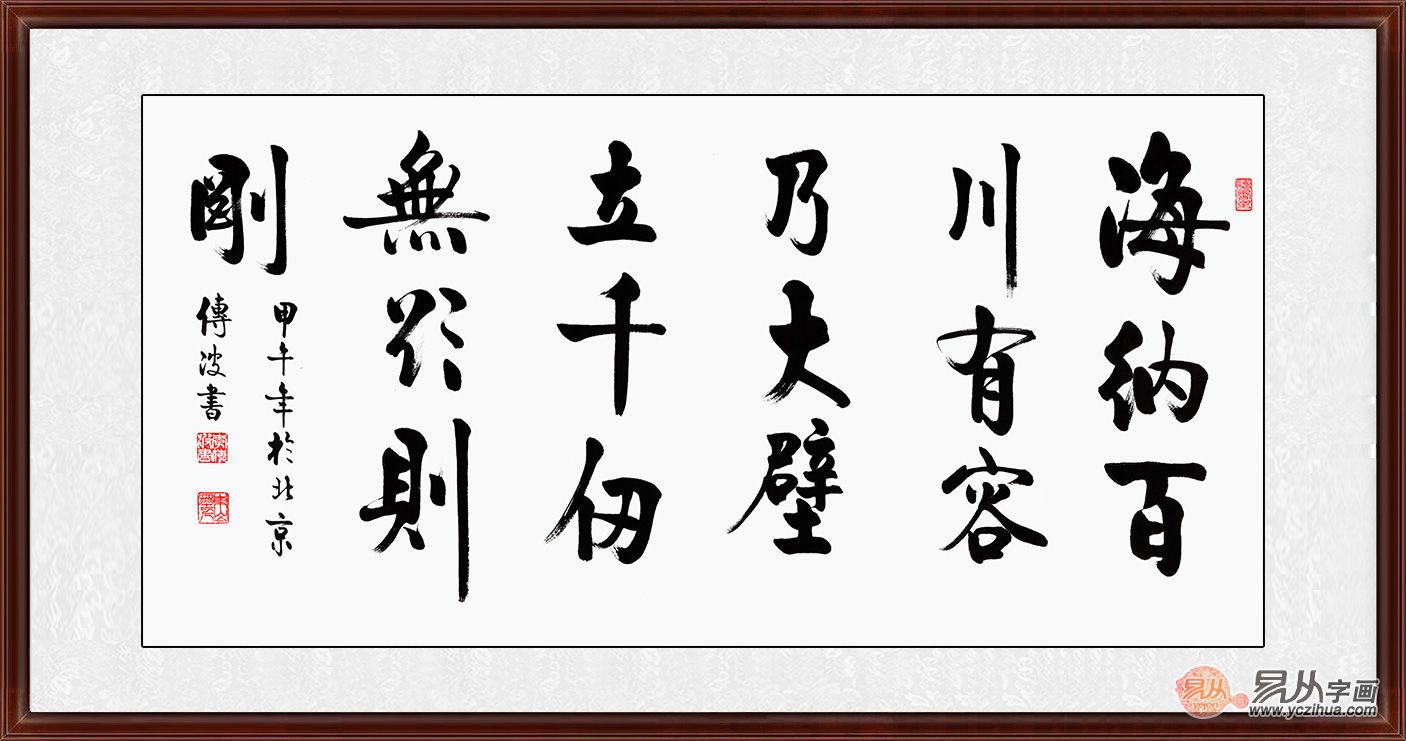 海納百
川有容
乃大壁
立千仞
無欲則
剛
甲午年於北京
傳波書
易从
易从字画
www.yczihua.com